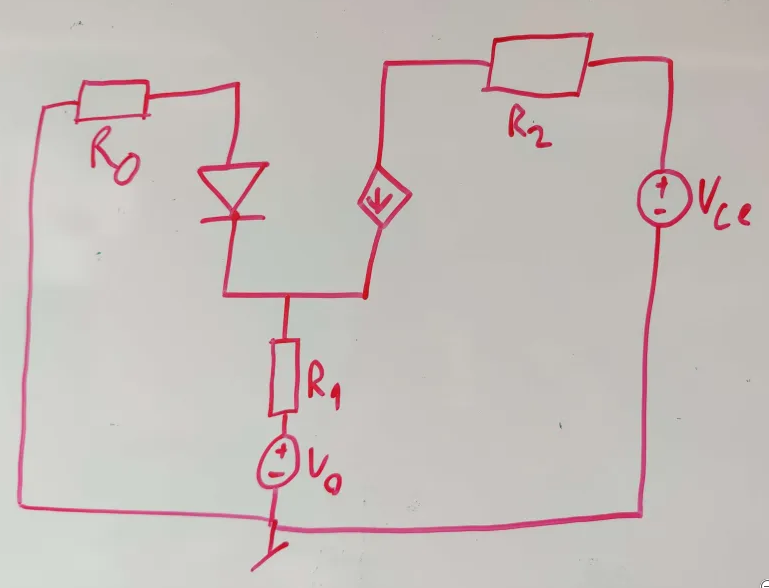 R0
R2
+
-
Vce
R1
+
-
V0